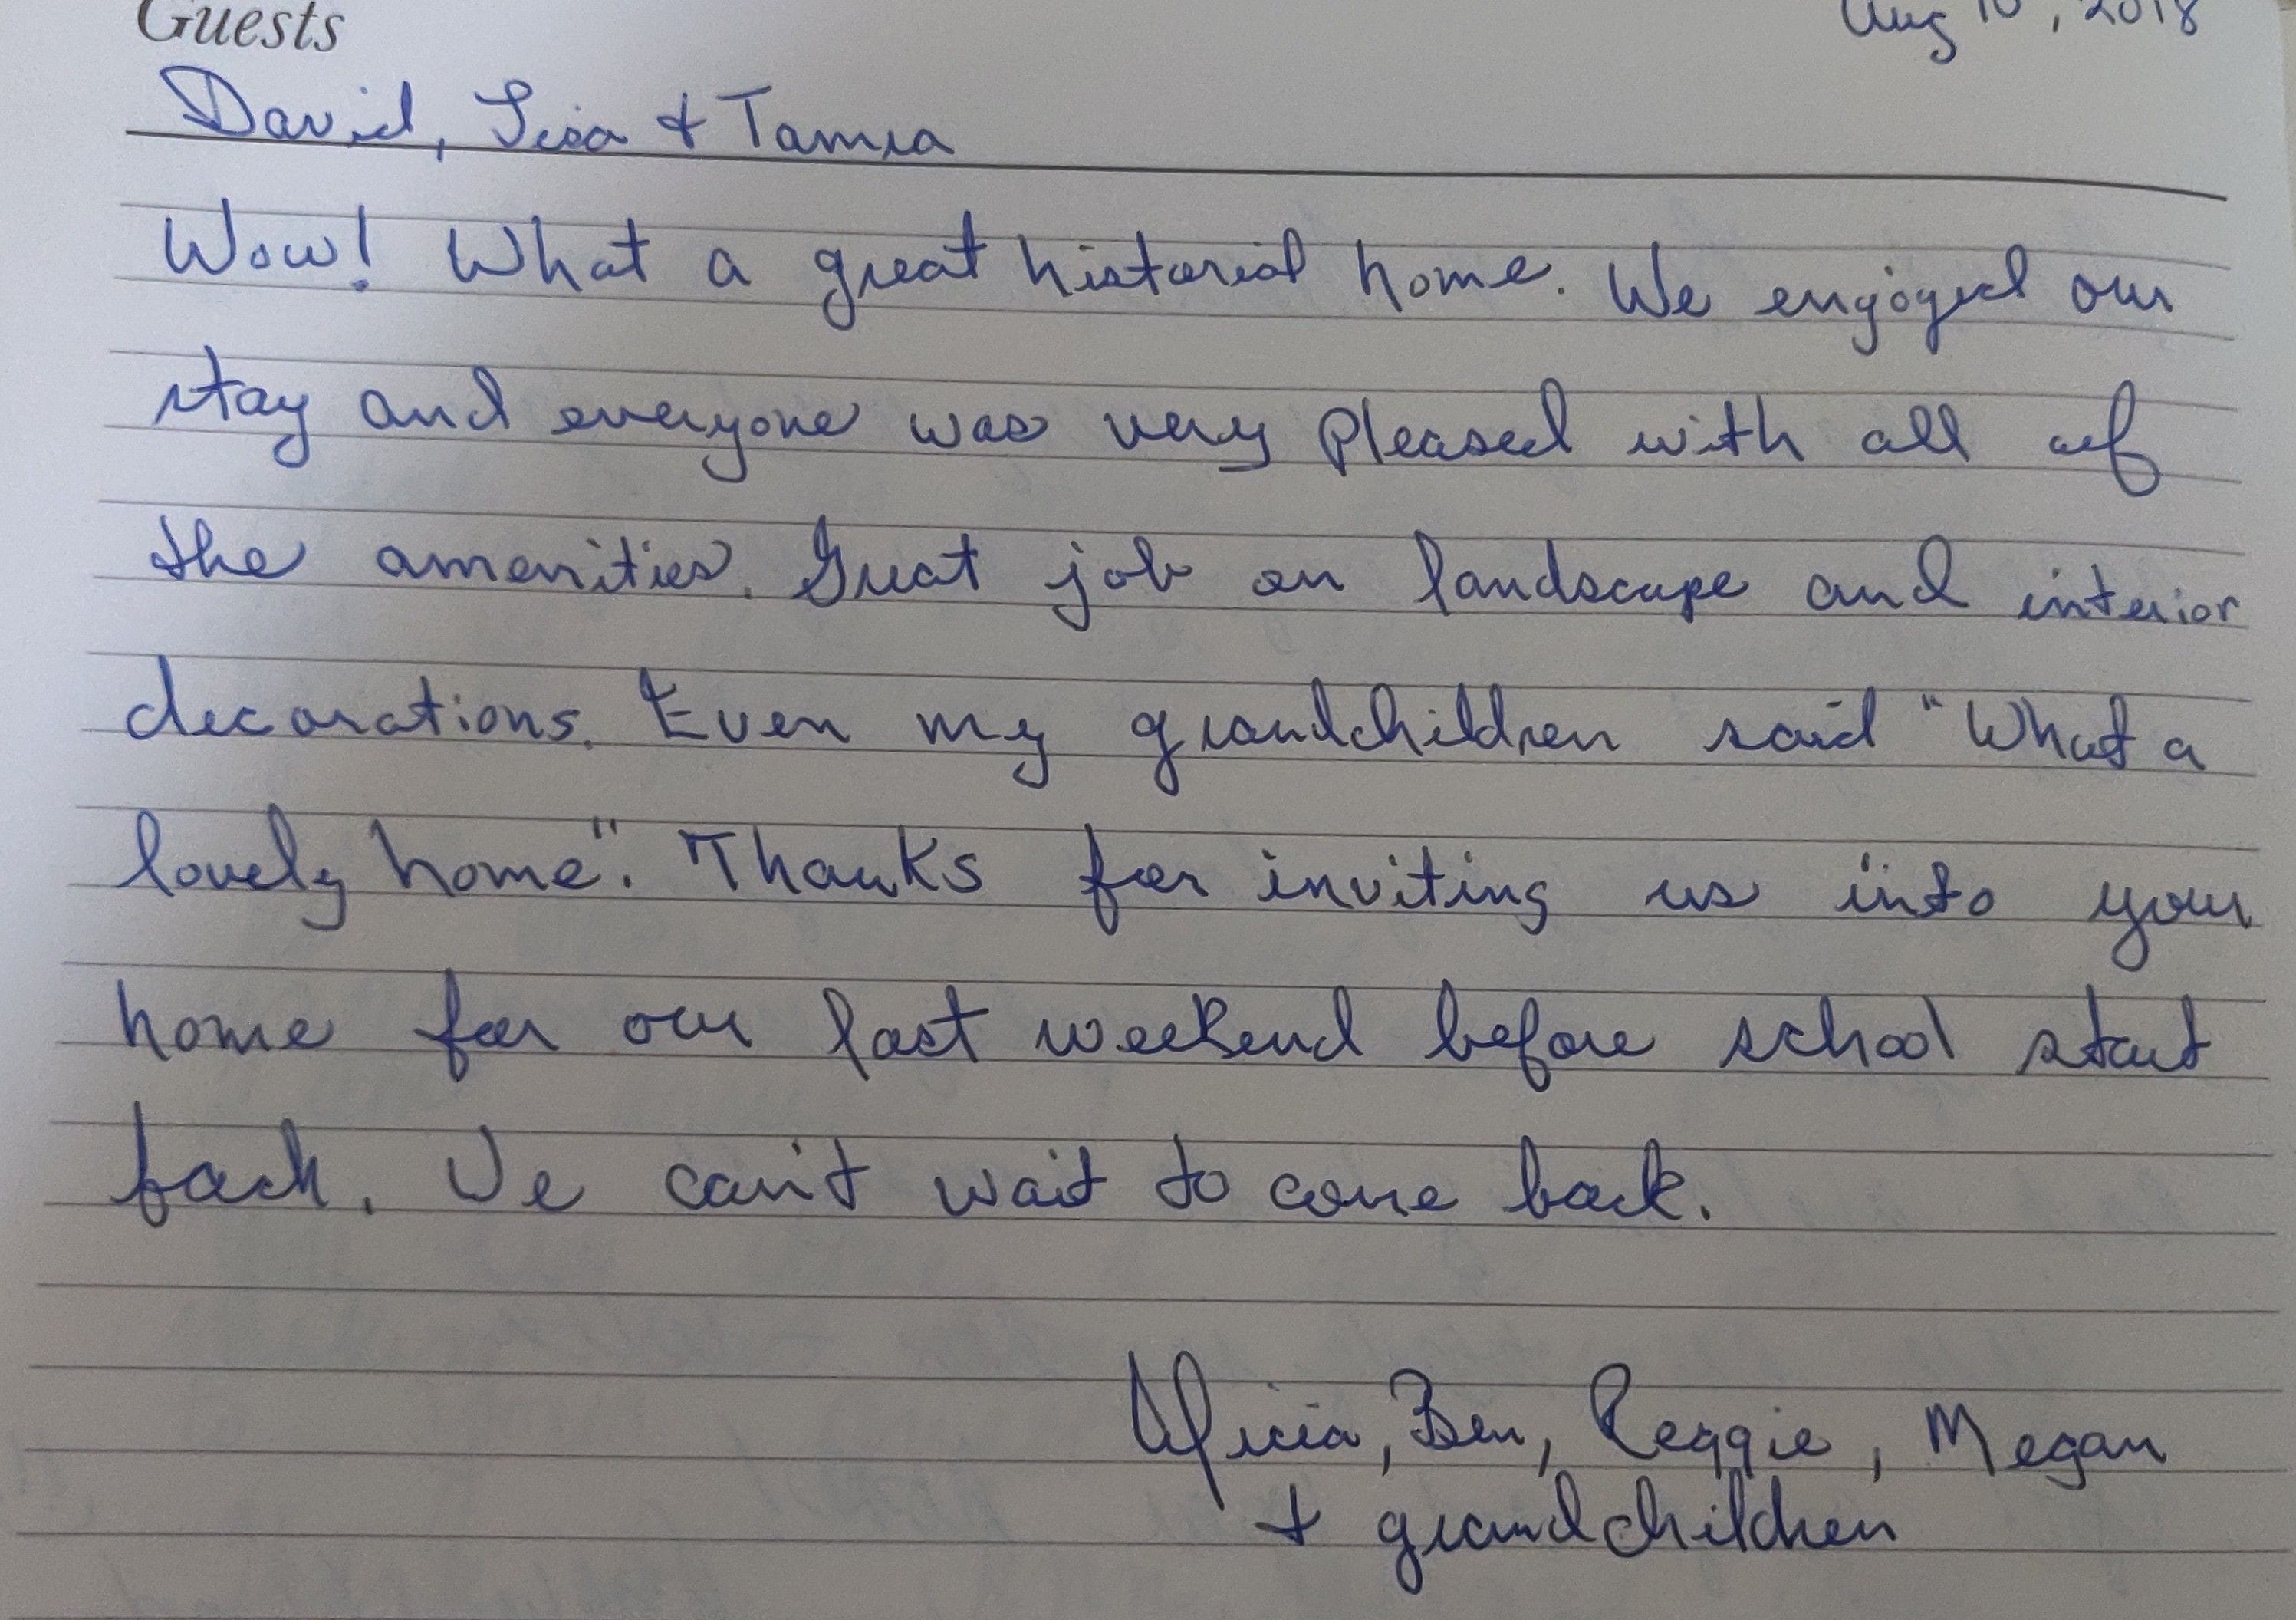 Guests
Aug 10, 2018
David, Lisa & Tamra
Wow! What a great historial home. We enjoyed our
stay and everyone was very pleased with all of
the amenities. Great job on landscape and interior
decorations. Even my grandchildren said "What a
lovely home". Thanks for inviting us into your
home for our last weekend before school start
back. We can't wait to come back.
Alicia, Ben, Reggie, Megan
& grandchildren